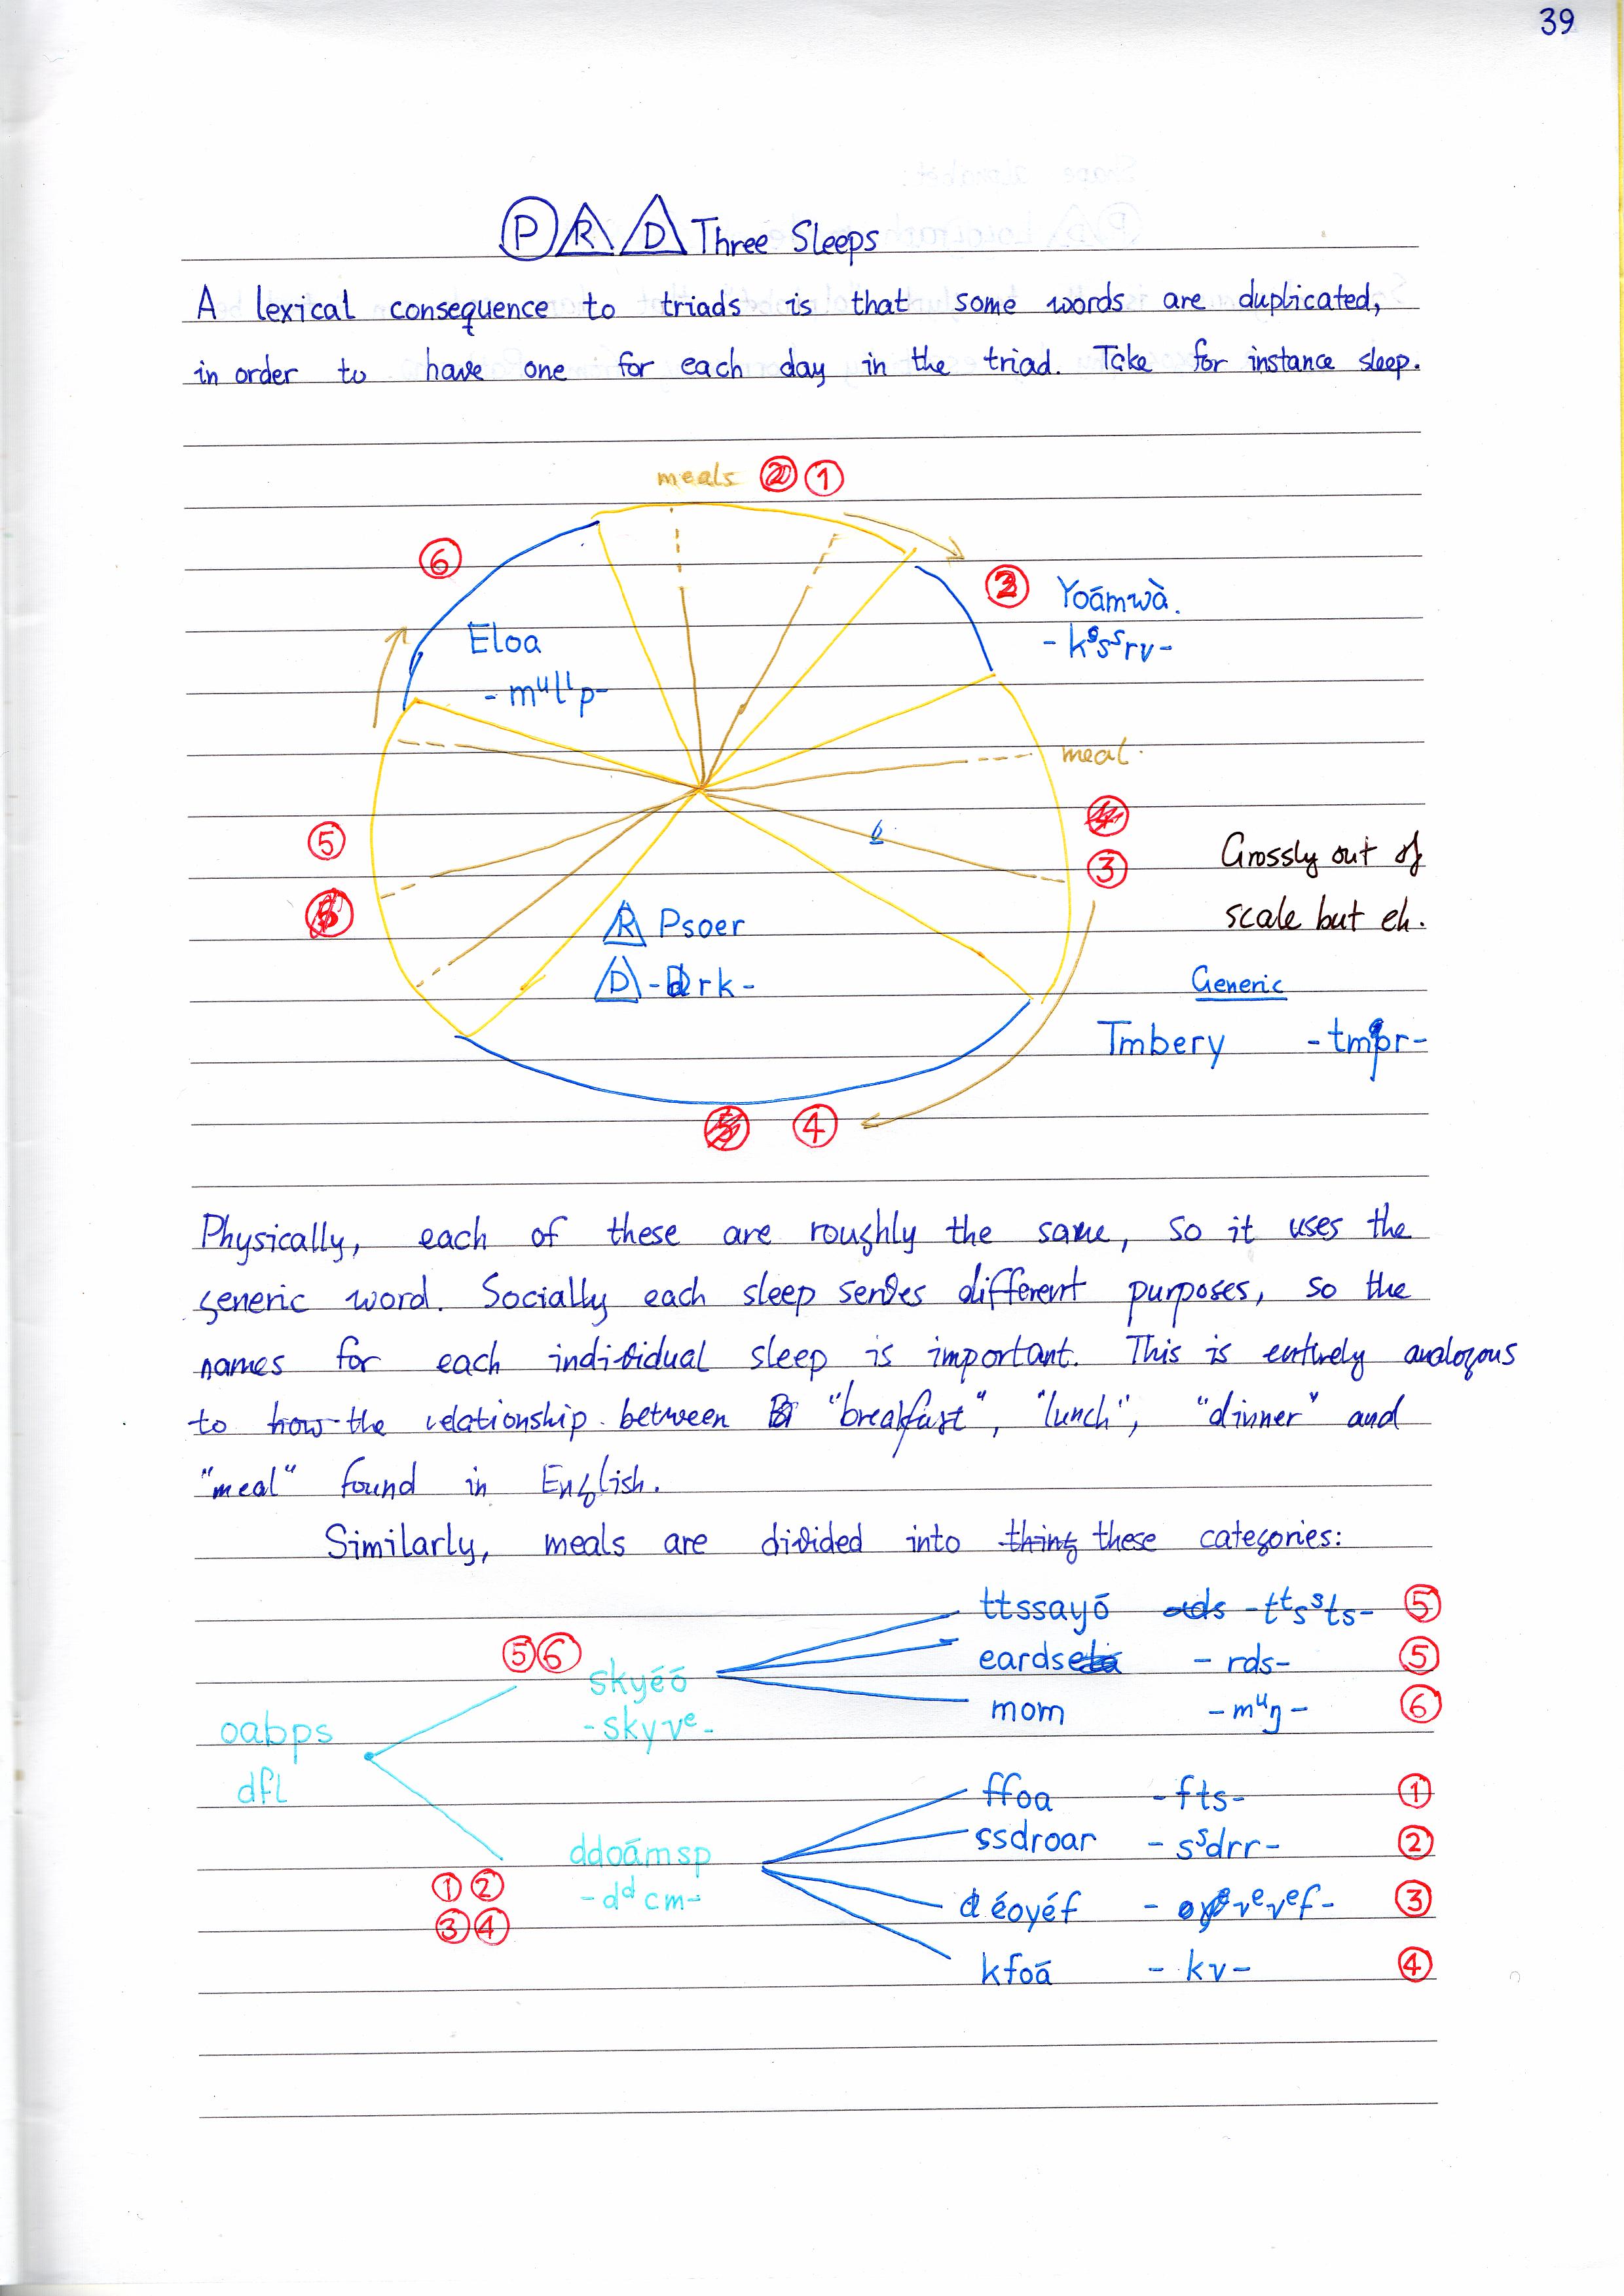 39
P R D Three Sleeps
A lexical consequence to triads is that some words are duplicated,
in order to have one for each day in the triad. Take for instance sleep.
meals ①
⑥
② Yoāmwà.
Eloa
-mᵘlˡp-
meal.
⑤
③
Grossly out of
scale but eh.
R Psoer
D -drk-
Generic
Tmbery
④
Physically, each of these are roughly the same, so it uses the
generic word. Socially each sleep serves different purposes, so the
names for each individual sleep is important. This is entirely analogous
to how the relationship between "breakfast", "lunch", "dinner" and
"meal" found in English.
Similarly, meals are divided into thing these categories:
ttssayō -tᵗsˢts- ⑤
⑤⑥ skyéō
eards -rds- ⑤
-skyvᵉ-
mom -mᵘŋ- ⑥
oabps
dfl
ffoa -fts- ①
ssdroar -sˢdrr- ②
ddoāmsp
①② -dᵈcm-
③④
déoyéf ③
kfoā -kv- ④